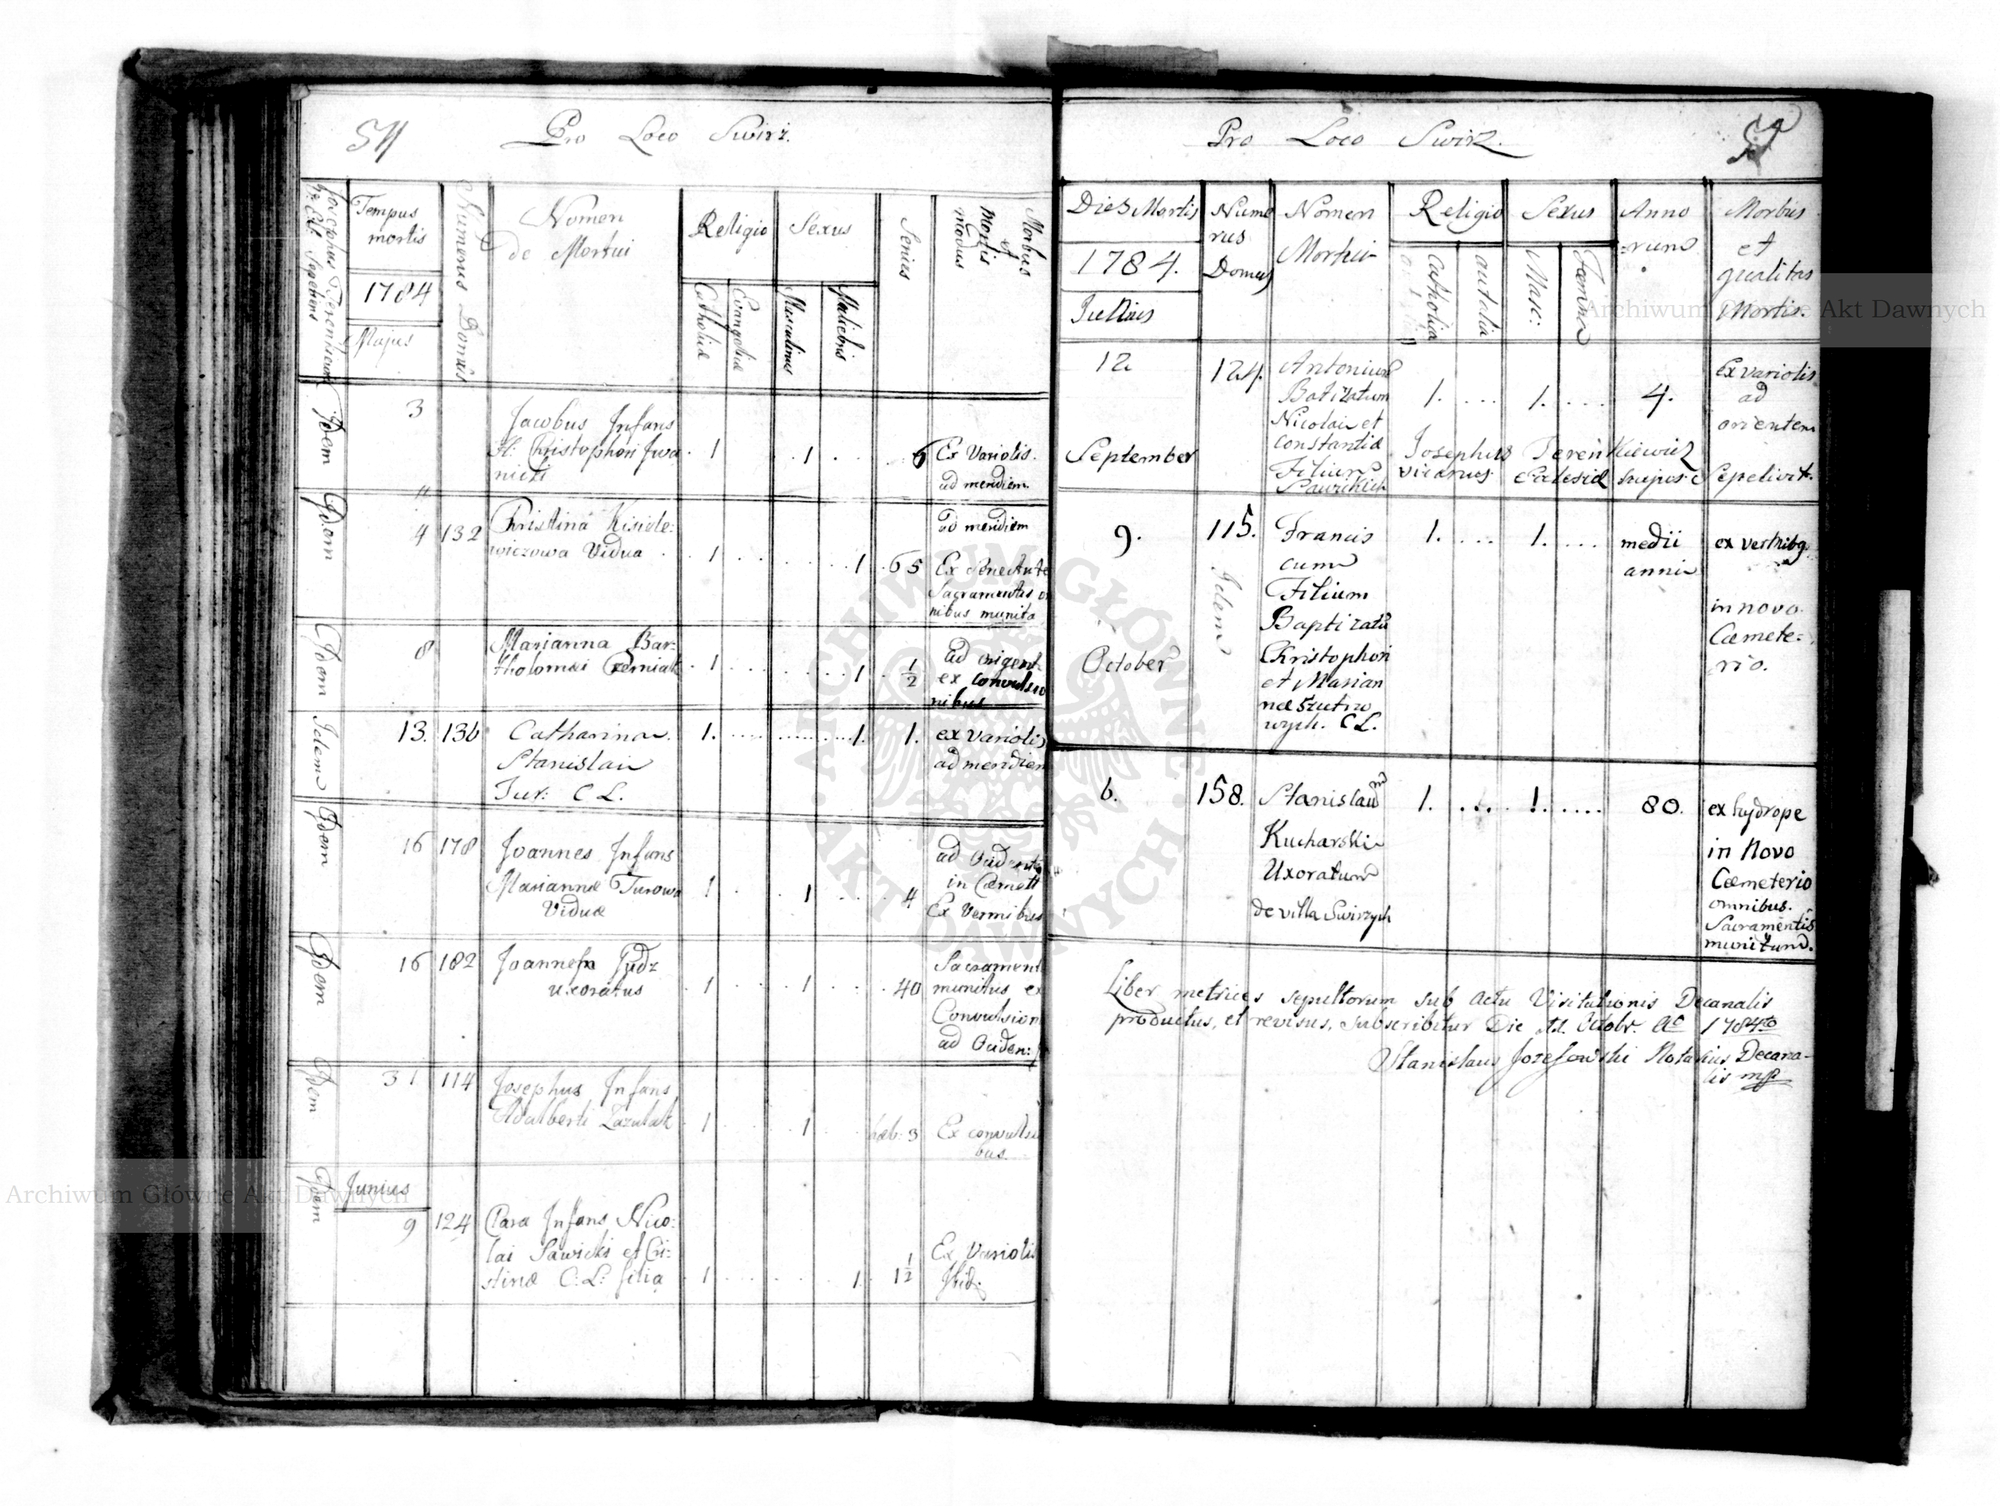 Pro Loco Swirz.
Josephus Terenkiewicz
Tempus
mortis
1784
Majus
Numerus Domus
Nomen
de Mortui
Religio
Catholicæ
Evangelicæ
Sexus
Masculinus
Muliebris
Senies
Morbus
et
Mortis
modus
Idem
3
Jacobus Infans
Christophori Iwa
nicki
1
1
6
Ex Variolis.
ad meridiem
Idem
4
132
Christina Kisiele:
wiczowa Vidua
1
1
65
ad meridiem
Ex Senectute
Sacramentis o
nibus munita
Idem
8
Marianna Bar:
tholomæi Czerniak
1
1
1/2
ad orient
ex convulsio
nibus
Idem
13.
136
Catharina
Stanislai
Tur: C L.
1.
1.
1.
ex variolis
ad meridiem
Idem
16
178
Joannes Infans
Mariannæ Turowa
Viduæ
1
1
4
ad Occident
in Cæmett
Ex Vermibus
Idem
16
182
Joannes Judz
uxoratus
1
1
40
Sacrament
munitus ex
Convulsion
ad Occiden:
Idem
31
114
Josephus Infans
Adalberti Zazulak
1
1
heb: 3
Ex convulsi
bus
Idem
Junius
9
124
Clara Infans Nico:
lai Sawicki et Cri:
stinæ C: L: filia
1
1
1 1/2
Ex Variolis
Ibid:
Pro Loco Swirz.
Dies Mortis
1784.
Jullius
Nume
rus
Domus
Nomen
Mortui
Religio
Catholica
autalia
Sexus
Masc:
Fæmin
Anno
rum
Morbus
et
qualitas
Mortis.
12
124.
Antonium
Batizatum
Nicolai et
Constantiæ
Filium
Sawickich
1.
1.
4.
ex variolis
ad
orientem
Josephus Terenkiewicz
vicarius Eclesiæ hujus Sepelivit.
September
9.
115.
Idem
Francis
cum
Filium
Baptizatu
Christophori
et Marian
næ Szutrow
wych. C L.
1.
1.
medii
anni
in novo
Cæmete:
rio.
October
6.
158.
Stanislaum
Kucharski
Uxoratum
de villa Swirzych
1.
1.
80.
ex hydrope
in Novo
Cæmeterio
omnibus.
Sacramentis
munitum.
Liber metrices sepultorum sub Actu Visitationis Decanalis
productus, et revisus, subscribitur Die Octobr. Ao 1784to
Stanislaus Jozefowski Notarius Decana-
lis mp
Archiwum Główne Akt Dawnych
Archiwum Główne Akt Dawnych
ARCHIWUM GŁÓWNE
AKT DAWNYCH